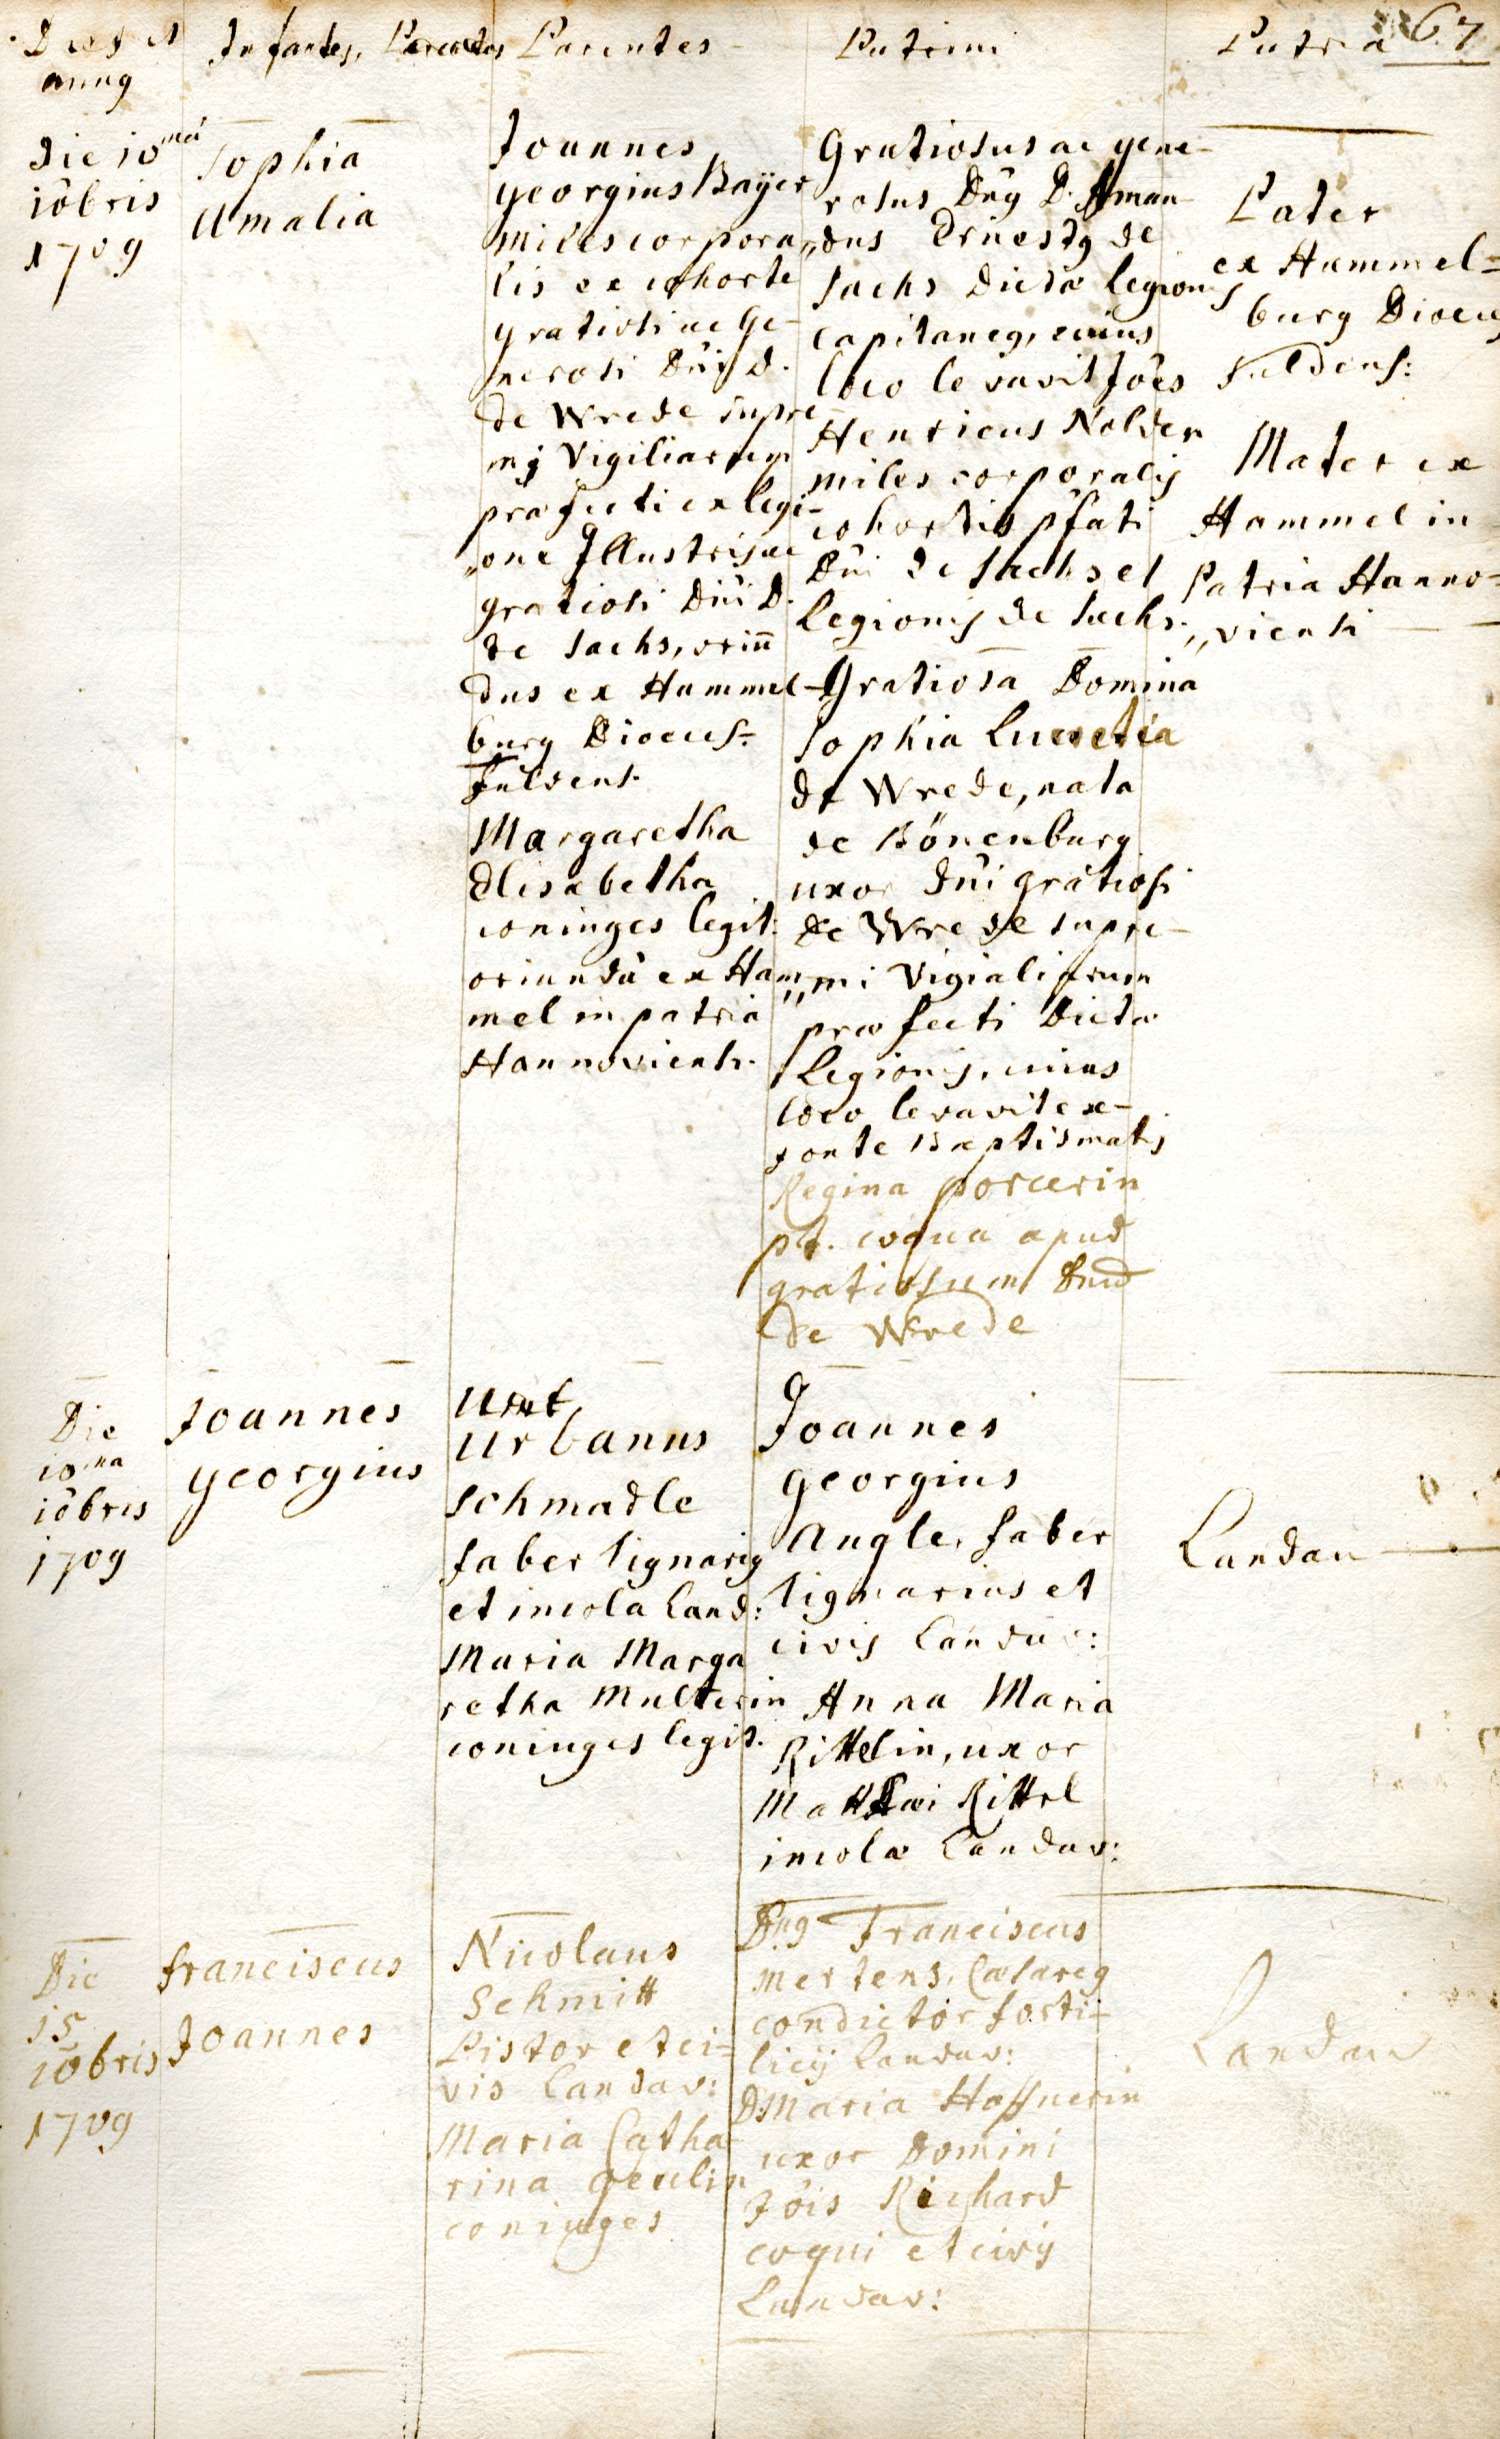 Dies et
annus
Infantes, Parentes
Parentes
Patrini
Patria
67
die 10ma
10bris
1709
Sophia
Amalia
Joannes
georgius Bayer
miles corpora„
lis ex cohorte
gratiosi ac Ge-
nerosi Dn̄i D.
de Wrede supre
mj Vigiliarum
præfecti ex legi-
„one Illustris ac
gratiosi Dn̄i D.
de Sachs, oriun̄
dus ex Hammel-
burg Dioeces:
fuldens.
Margaretha
Elisabetha
coniuges legit:
oriunda ex Ham„
mel in patria
Hannoviensi.
Gratiosus ac gene-
rosus Dn̄s D. Aman-
„dus Ernestus de
Sachs dictæ legionis
capitaneus, cuius
loco levavit Jōes
Henricus Nolden
miles corporalis
cohortis p̄fati
Dn̄i de Sachs et
Legionis de Sachs.
Gratiosa Domina
Sophia Lucretia
de Wrede, nata
de Bönenburg
uxor Dn̄i gratiosi
de Wrede supre-
„mi Vigialiarum
præfecti Dictæ
Legionis, cuius
loco levavit ex-
fonte Baptismatis
Regina porcerin
p.t. coqua apud
gratiosum Dnūm
de Wrede
Pater
ex Hammel=
burg Dioeces
fuldens:
Mater ex
Hammel in
Patria Hanno=
„viensi
Die
10ma
10bris
1709
Joannes
georgius
Urbanus
Schmadle
faber lignarius
et incola Land:
Maria Marga
retha Multerin
coniuges legit.
Joannes
georgius
Angle, faber
lignarius et
civis Landav:
Anna Maria
Rittelin, uxor
Matthæi Rittel
incolæ Landav:
Landau
Die
15
10bris
1709
franciscus
Joannes
Nicolaus
Schmitt
Pistor et ci=
vis Landav:
Maria Catha-
rina geulin
coniuges
Dn̄s Franciscus
Mertens, Cæsareus
conductor forti-
licij Landav:
D. Maria Hoffnerin
uxor Domini
Jōis Richard
coqui et civis
Landav:
Landau